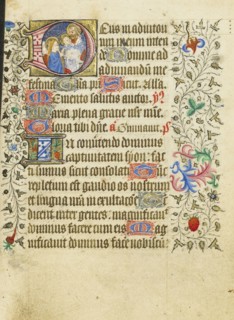 Deus in adiutori
um meum inten
de Domine ad
adiuuandū me
festina Glīa p̄i Sicut. Alla.
Memento salutis auctor. p̄s
Maria plena gracie
Gloria tibi dn̄e. a
In cōuertēdo dominus
captiuitatem syon fac
ti sumus sicut consolati Tunc
repletum est gaudio os nostrum
et lingua nr̄a in exultacōe Tunc
dicent inter gentes magnificauit
dominus facere cum eis Mag
nificauit dominus facere nobiscū